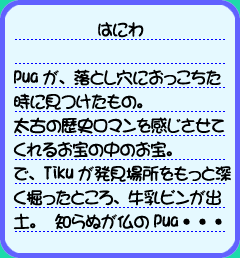 はにわ
Pua が、落とし穴におっこちた
時に見つけたもの。
太古の歴史ロマンを感じさせて
くれるお宝の中のお宝。
で、Tiku が発見場所をもっと深
く掘ったところ、牛乳ビンが出
土。 知らぬが仏の Pua・・・